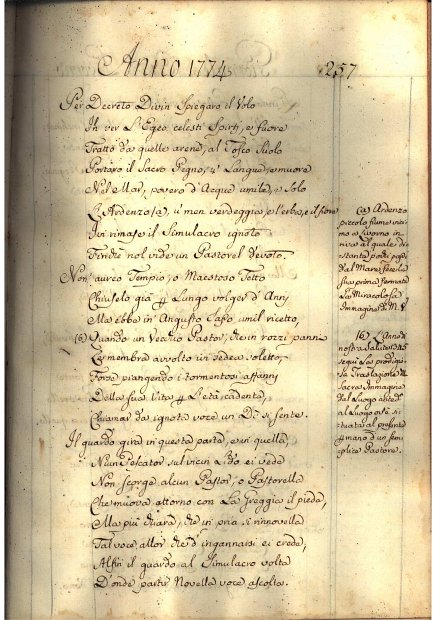 Anno 1774
257
Per Decreto Divin Spiegaro il Volo
In ver L'Egeo celesti Spirti, e fuore
Tratto da quelle arene, al Tosco Suolo
Portaro il Sacro Pegno, u' Langue, e muore
Nel Mar, povero d'Acque umile, e Solo
L'Ardenzo (a), u' men verdeggia, e l'erba, e il fiore
Ivi rimase il Simulacro ignoto
Finche nol vide un Pastorel devoto.
Non aureo Tempio, o Maestoso Tetto
Chiuselo già Lungo volger d'Anny
Ma ebbe in Angusto Casso umil ricetto,
(b) Quando un Vecchio Pastor, che in rozzi panni
Le membra avvolto in sedea soletto,
Forse piangendo i tormentosi affanny
Della sua Vita L'età cadente,
Chiamar da ignota voce un Dì si sente.
Il guardo gira in questa parte, e in quella,
Niun Pescator sul vicin Lido ei vede
Non scorge alcun Pastor, o Pastorella
Che muova attorno con La Greggia il piede,
Ma più chiara, che in pria si rinnovella
Tal voce, allor che d'ingannarsi ei crede,
Alfin il guardo al Simulacro volta
D'onde partir Novella voce ascolta.
(a) Ardenzo
piccolo fiume vici
mo a Livorno in
riva al quale di
stante pochi passi
dal Mare fece la
sua prima fermata
La Miracolosa
Immagine di M. V.
(b) L'Anno
nostra Salute
seguì La prodigio
sa Traslazione
Sacra Immagine
dal Luogo
al Luogo ov'è si
tuata al presente
mano d'un sem
plice Pastore.